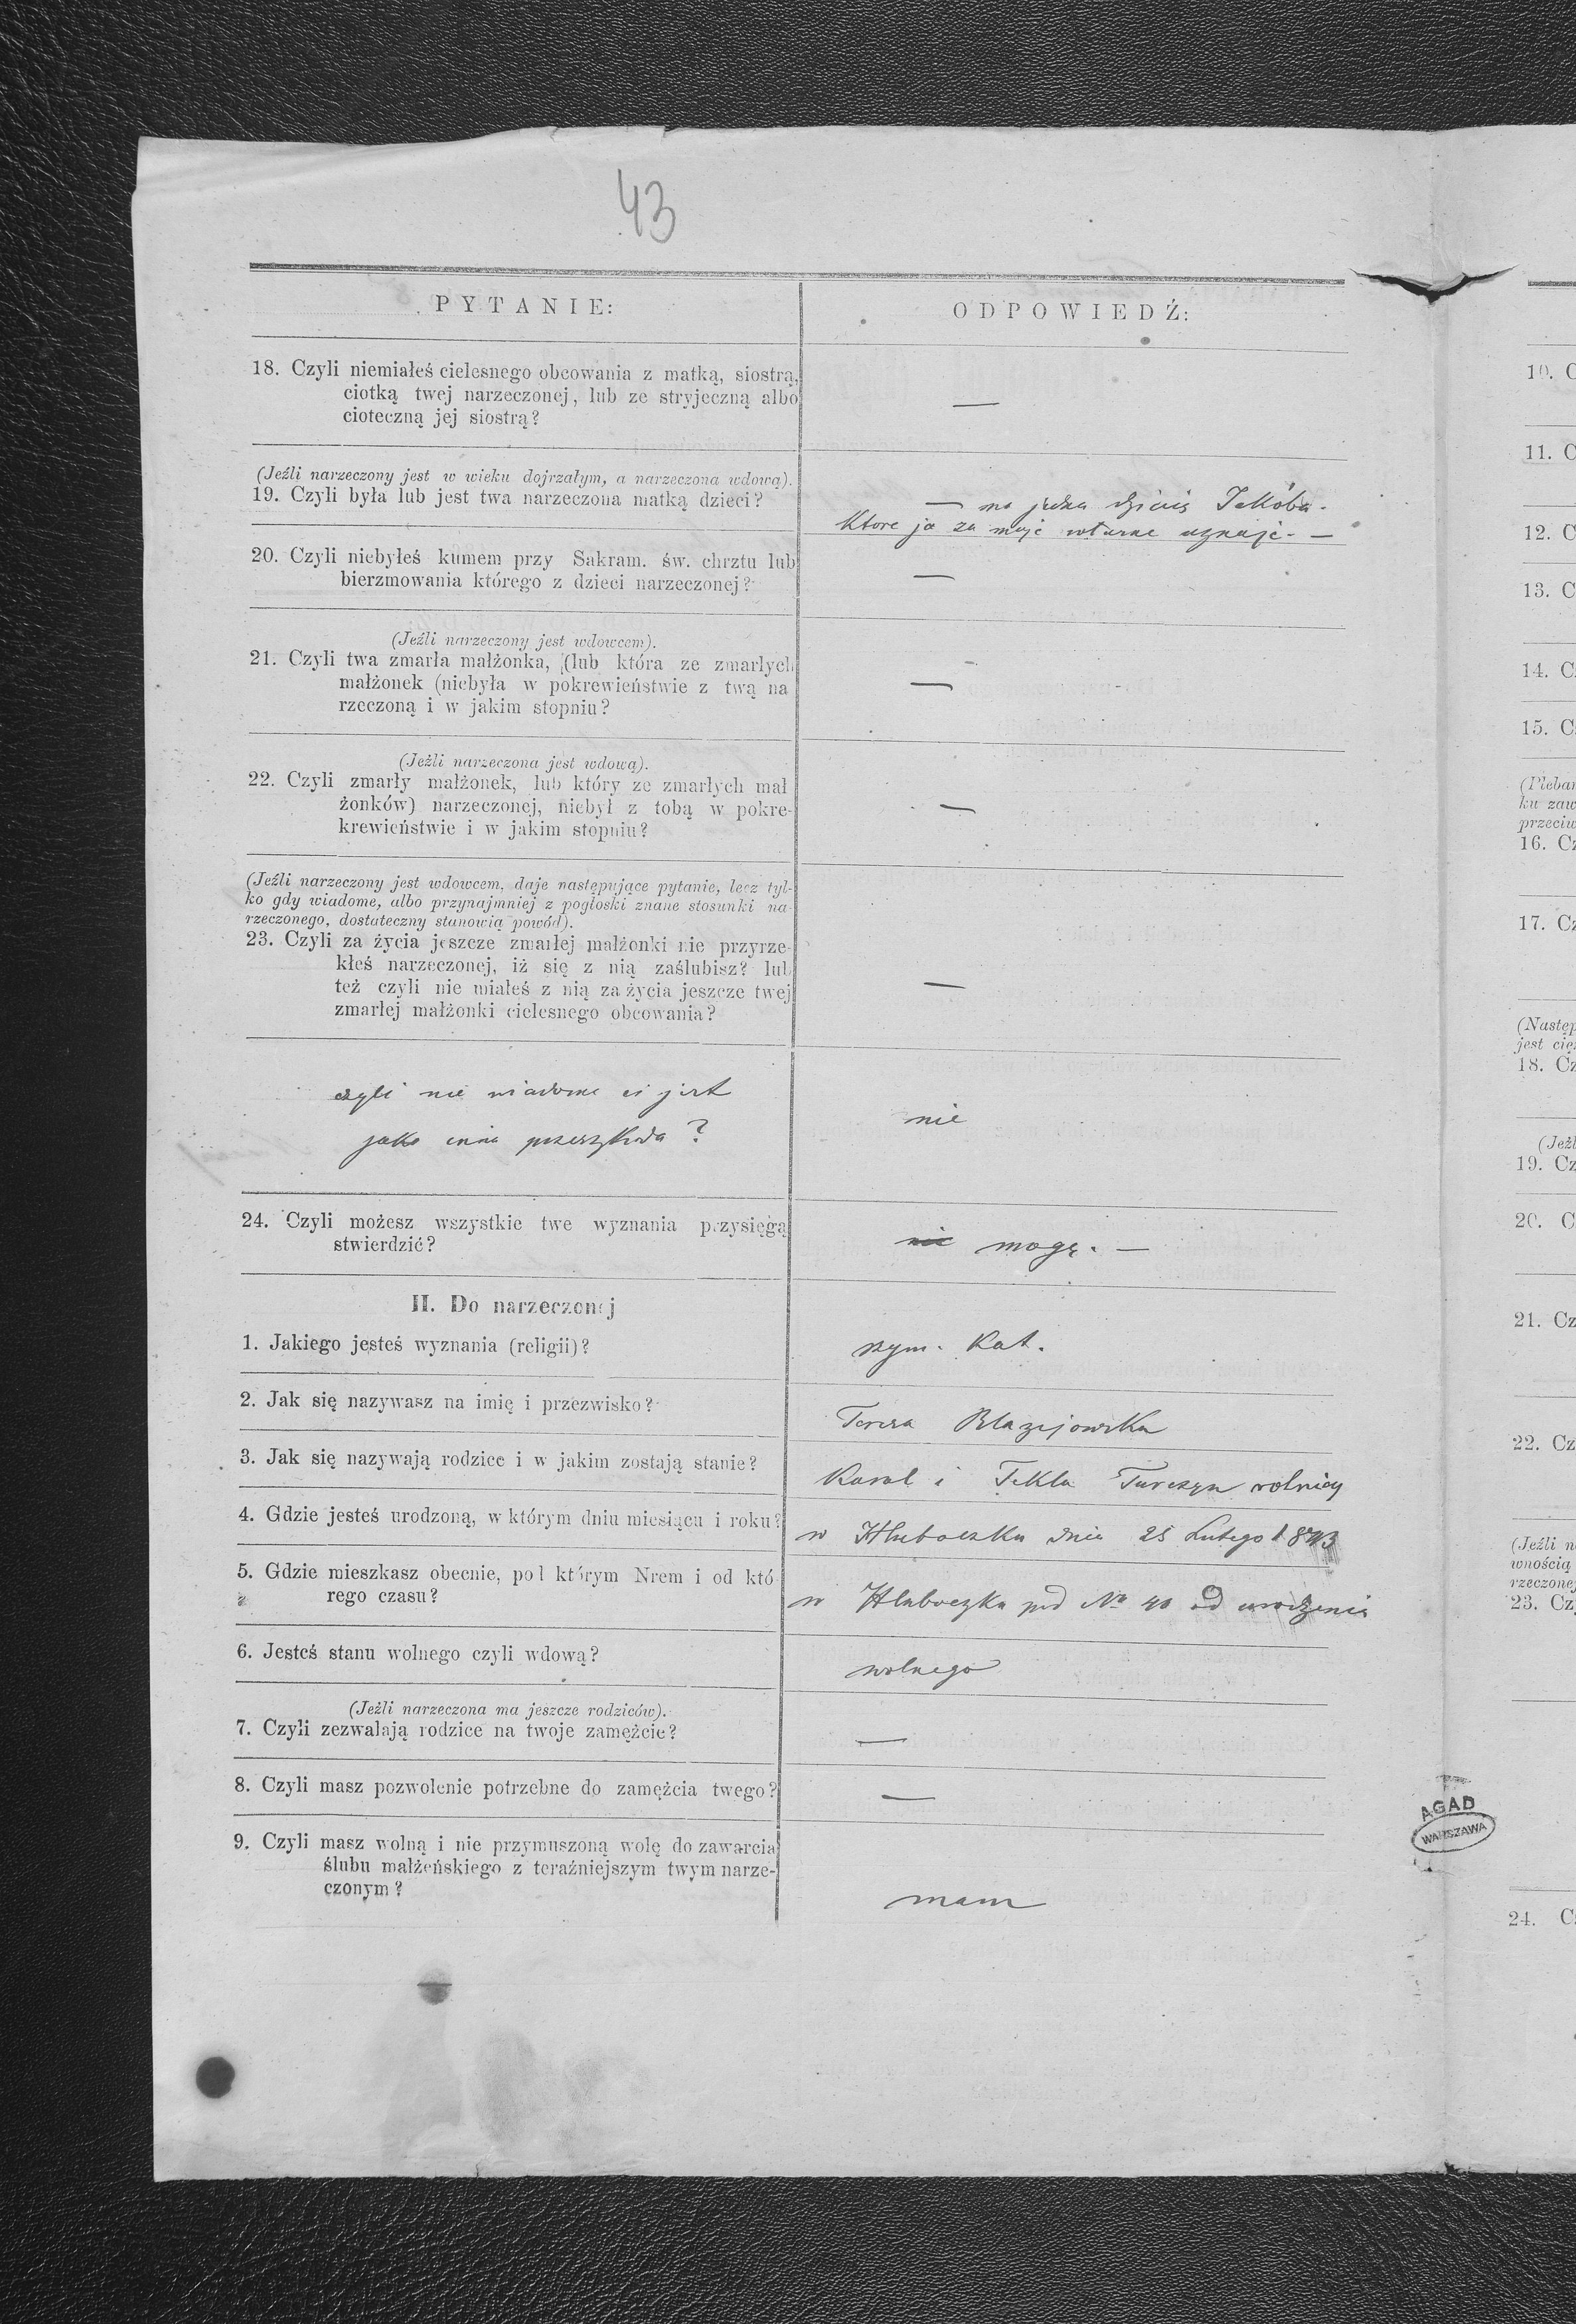 43
PYTANIE:
ODPOWIEDŹ:
18. Czyli niemiałeś cielesnego obcowania z matką, siostrą,
ciotką twej narzeczonej, lub ze stryjeczną albo
cioteczną jej siostrą?
—
(Jeźli narzeczony jest w wieku dojrzałym, a narzeczona wdową).
19. Czyli była lub jest twa narzeczona matką dzieci?
— ma jedna dziecię Jakóba.
Ktore ja za moje własne uznaje. —
20. Czyli niebyłeś kumem przy Sakram. św. chrztu lub
bierzmowania którego z dzieci narzeczonej?
—
(Jeźli narzeczony jest wdowcem).
21. Czyli twa zmarła małżonka, (lub która ze zmarłych
małżonek (niebyła w pokrewieństwie z twą na
rzeczoną i w jakim stopniu?
—
(Jeźli narzeczona jest wdową).
22. Czyli zmarły małżonek, lub który ze zmarłych mał
żonków) narzeczonej, niebył z tobą w pokre-
krewieństwie i w jakim stopniu?
—
(Jeźli narzeczony jest wdowcem, daje następujące pytanie, lecz tyl-
ko gdy wiadome, albo przynajmniej z pogłoski znane stosunki na-
rzeczonego, dostateczny stanowią powód).
23. Czyli za życia jeszcze zmarłej małżonki nie przyrze-
kłeś narzeczonej, iż się z nią zaślubisz? lub
też czyli nie miałeś z nią za życia jeszcze twej
zmarłej małżonki cielesnego obcowania?
—
czyli nie wiadome ci jest
jaka inna przeszkoda?
nie
24. Czyli możesz wszystkie twe wyznania przysięgą
stwierdzić?
nie mogę. —
II. Do narzeczonej
1. Jakiego jesteś wyznania (religii)?
rzym. Kat.
2. Jak się nazywasz na imię i przezwisko?
Teresa Blazejowska
3. Jak się nazywają rodzice i w jakim zostają stanie?
Karol i Tekla Turczyn rolnicy
4. Gdzie jesteś urodzoną, w którym dniu miesiącu i roku?
w Hluboczku dnia 25 Lutego
5. Gdzie mieszkasz obecnie, pod którym Nrem i od któ
rego czasu?
w Hluboczku pod No 40 od urodzenia
6. Jesteś stanu wolnego czyli wdową?
wolnego
(Jeźli narzeczona ma jeszcze rodziców).
7. Czyli zezwalają rodzice na twoje zamęźcie?
—
8. Czyli masz pozwolenie potrzebne do zamężcia twego?
—
9. Czyli masz wolną i nie przymuszoną wolę do zawarcia
ślubu małżeńskiego z teraźniejszym twym narze-
czonym?
mam
10. C
11. C
12. C
13. C
14. C
15. C
(Pleban
ku zaw
przeciw
16. Cz
17. Cz
(Następ
jest cię
18. Cz
(Jeźl
19. Cz
20. C
21. Cz
22. Cz
(Jeźli n
wnością
rzeczonej
23. Cz
24. C
AGAD
WARSZAWA